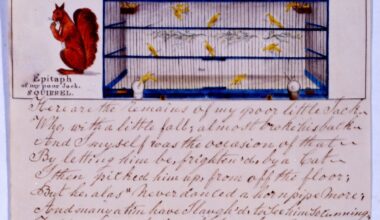 Epitaph
of my poor Jack,
SQUIREL.
Here are the remains of my poor little Jack
Who, with a little fall, almost broke his back
And I myself was the occasion of that
By letting him be, frighten'd, by a Cat
I then picked him up, from off the floor,
But he, alas! Never danced a hornpipe more;
And many a time have I laugh'd to see him so cunning